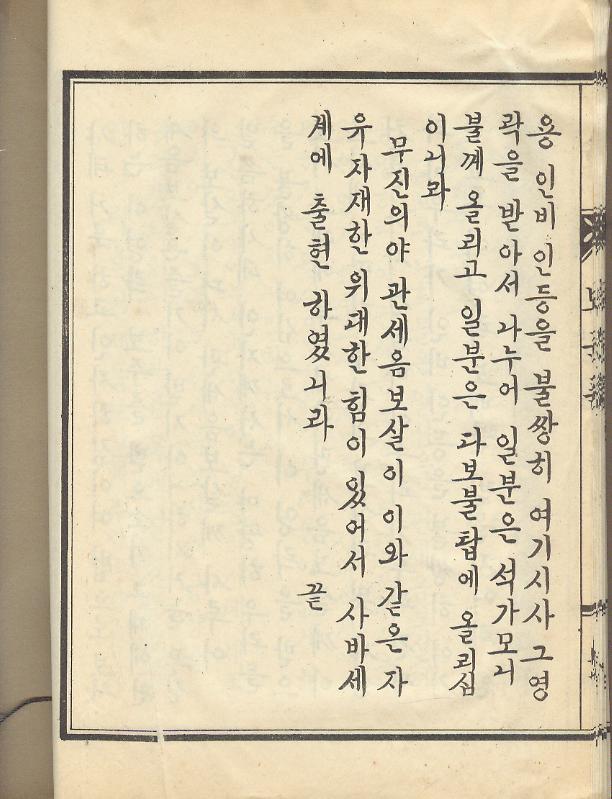 용 인비인등을 불쌍히 여기시사 그 영
락을 받아서 나누어 일분은 석가모니
불께 올리고 일분은 다보불탑에 올리십
이니다
무진의야 관세음보살이 이와 같은 자
유자재한 위대한 힘이 있어서 사바세
계에 출현 하였니라 끝